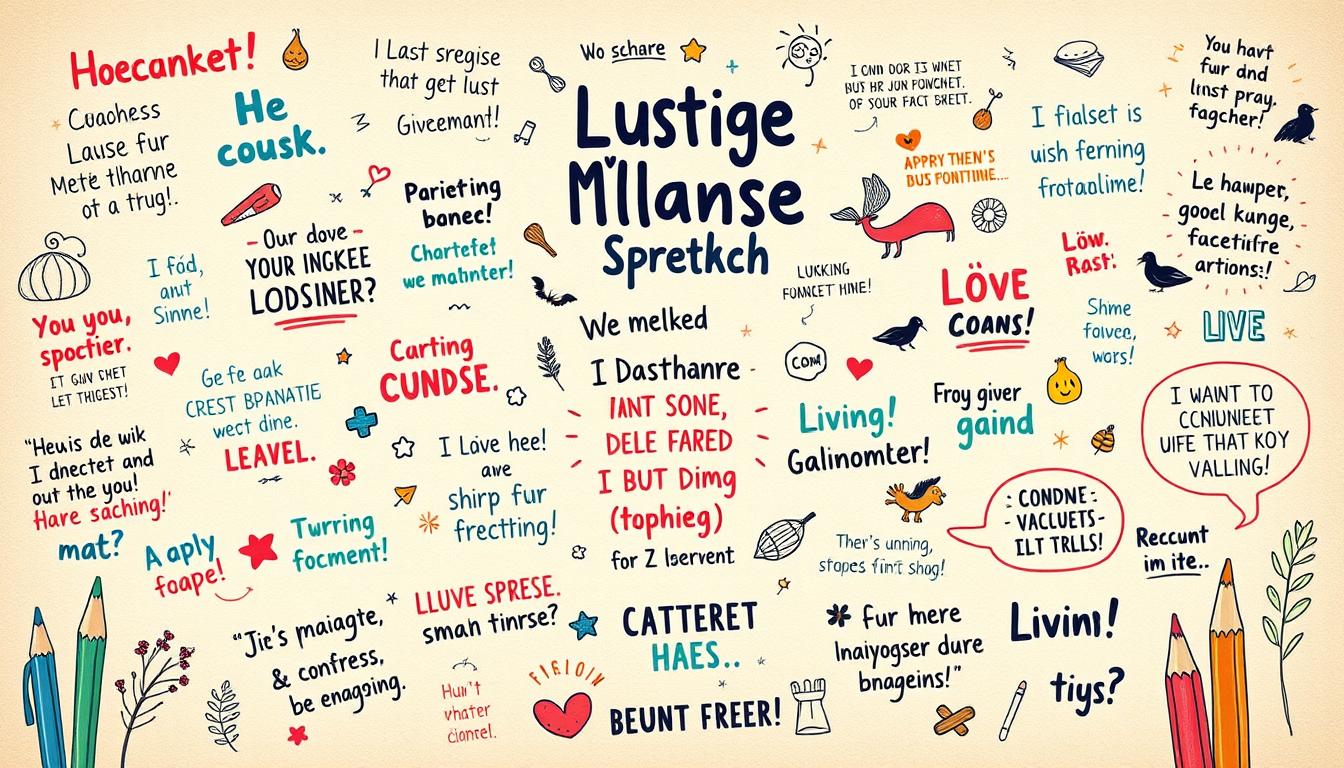 Hoecanket!
Cuachess
Lause fur
Mete tlhame
of a trug!.
He
cousk.
I Last sregise
that get lust
Giveemant!
Wo schare
Lustige
Mllanse
Spretkch
I CNN DOR I3 WNET
BUS HR JUN POWCHET.
OF SOUR FACT SREET.
APPRY THEN'S
BUS PONTTINE...
I fialset is
uish ferning
frotaolime!
You havt
fur and
linst pray.
fagcher!
Le hawper,
gooel kunge,
facetifre
artions:!
- Our dove -
YOUR INGKEE
LODSINER?
Parieting
banee!
Chartefet
we mahnter!
I fód,
ant
Sinne!
You you,
spoctier.
IT GNV CHET
LET THIGEST!
Ge fe aak
CREST BPANATIE
wect dine.
LEAVEL.
Carting
CUNDSE.
We melked
I Dasthanre
IANT SONE,
DELE FARED
I BUT Dimg
(tophieg)
for Z lservent
LUKKING
FONNCET HINE!
LÖVE
COANS!
Löw.
Rast:
Shme
foivee,
wors!
LIVE
COM
Living!
Galinomter!
Froy giver
gaind
I WAINT TO
CCNIUNEET
UIFE THAT KOY
VALLING!
"Heuis de wik
I dnectet and
out the you!
Hare saching!'
mat?
A aply
foape!
Twrring
focment!
I Lave hee!
awe
shirp fur
frectting!
Ther's unning,
stopes fint shog!
: CONDNE :
- VACLUETS-
ILT TRLLS!
Reccunt
im ite..
"Jie's maiagte,
& confress,
be enagjing.
LLUVE SPRESE.
smah tinrse?
Huir't
vhater
ciancel.
FIGIOIN
CATTERET
HAES..
BEUNT FREER!
fur here
Inaiyogser dure
bnageins!"
Livinı!
tiys?